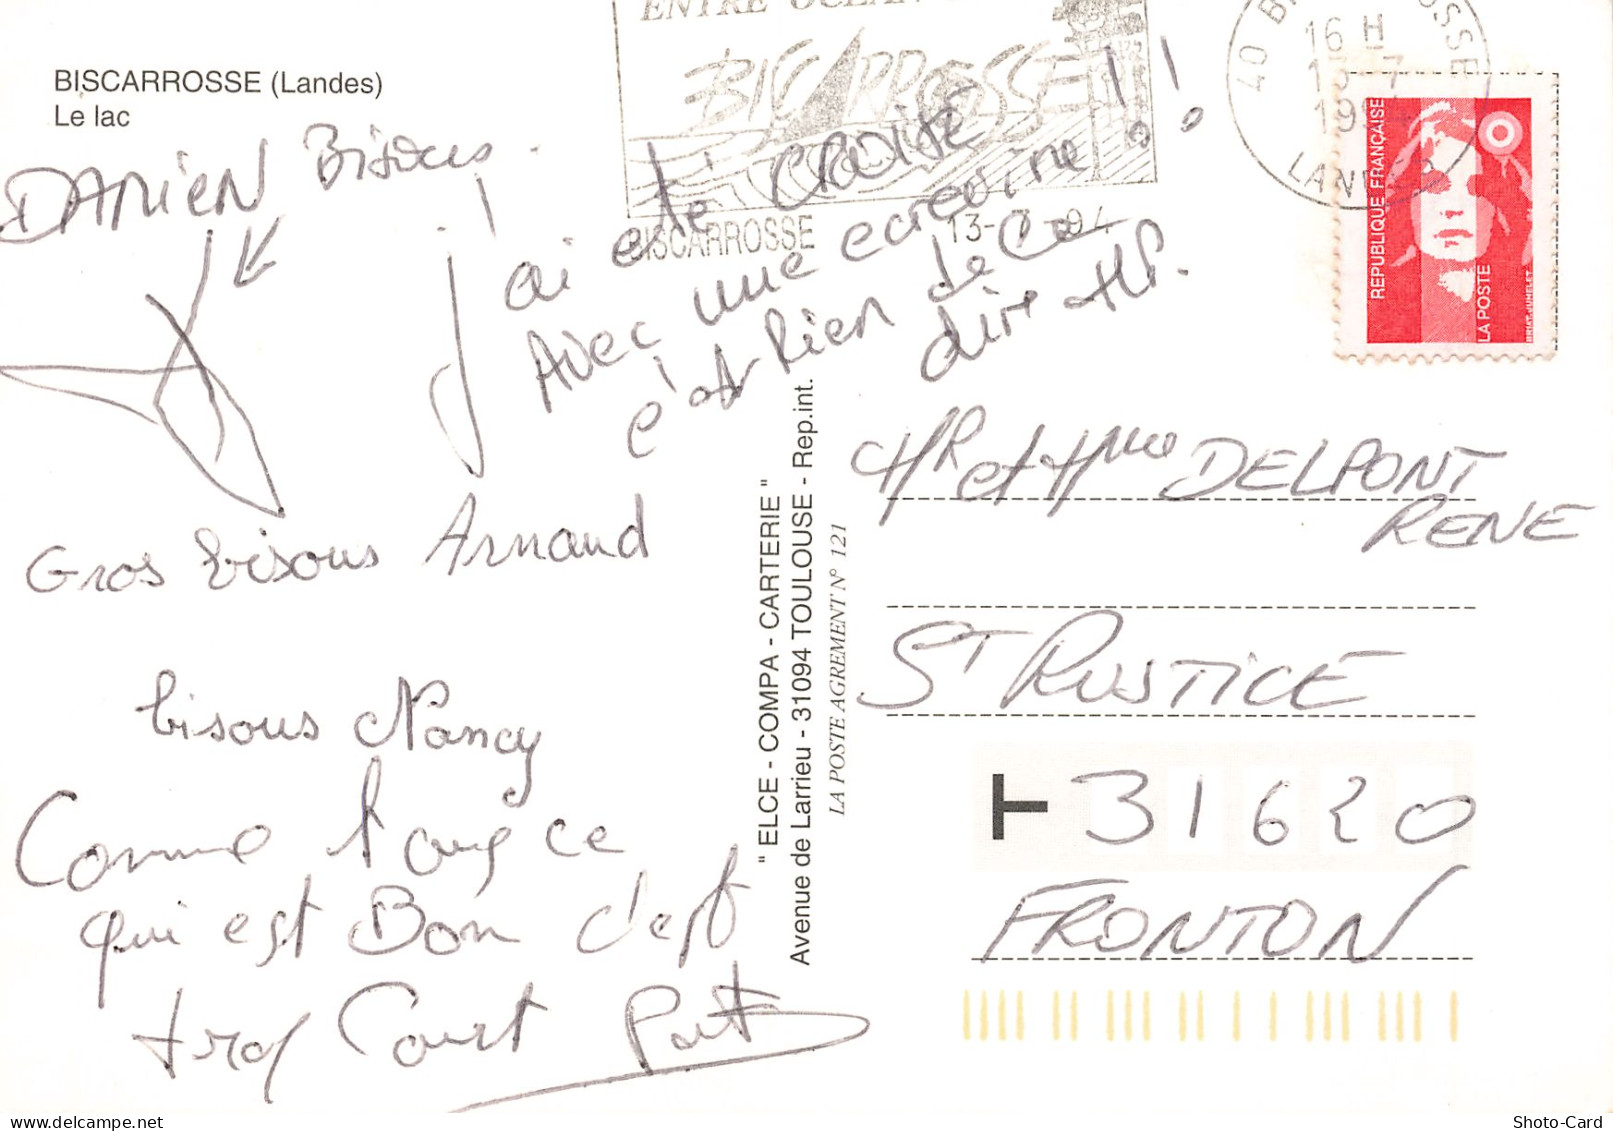 BISCARROSSE (Landes)
Le lac
ENTRE OCEAN
BISCARROSSE
BISCARROSSE 13-7-94
40 B OSSE
16 H
13-7
19
LANDES
REPUBLIQUE FRANÇAISE
LA POSTE
BRIAT-JUMELET
DAMIEN Bisous.
J'ai été CROISÉ !!
Avec une écrevine
c'est Rien de Ce
dire
Gros bisous Arnaud
bisous Nancy
Comme tout ce
qui est Bon c'est
trop Court
" ELCE - COMPA - CARTERIE "
Avenue de Larrieu - 31094 TOULOUSE - Rep.int.
LA POSTE AGREMENT N° 121
MR et Mme DELPONT
RENE
ST RUSTICE
31620
FRONTON
Shoto-Card